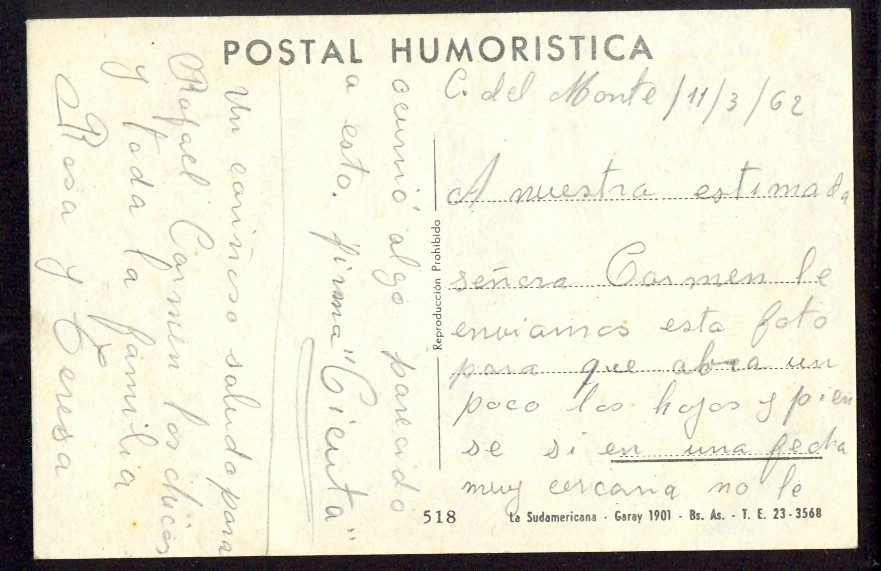 POSTAL HUMORISTICA
C. del Monte / 11/3/62
A nuestra estimada
señora Carmen le
enviamos esta foto
para que abra un
poco los hojos y pien
se si en una fecha
muy cercana no le
ocurrió algo parecido
a esto. firma "Cicuta"
Un cariñoso saludo para
Rafael Carmen los chicos
y toda la familia
Rosa y Teresa
Reproducción Prohibida
518
La Sudamericana - Garay 1901 - Bs. As. - T. E. 23-3568